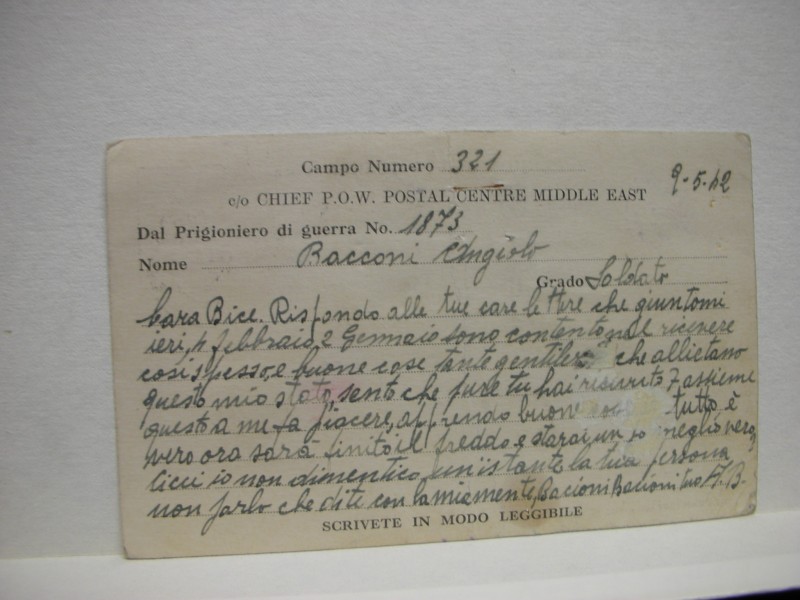 Campo Numero 321
9-5-42
c/o CHIEF P.O.W. POSTAL CENTRE MIDDLE EAST
Dal Prigioniero di guerra No. 1873
Nome Bacconi Angiolo
Grado Soldato
Cara Bice. Rispondo alle tue care lettere che giuntomi
ieri, 4 febbraio, 2 Gennaio sono contento nel ricevere
così spesso, e buone cose, tante gentilezze che allietano
questo mio stato, sento che pure tu hai ricevuto 7 assieme
questo a me fa piacere, apprendo buone tutto, è
vero ora sarà finito il freddo e starai un po meglio vero
Cicci io non dimentico un'istante la tua persona,
non farlo che di te con la mia mente, Bacioni Bacioni tuo A. B.
SCRIVETE IN MODO LEGGIBILE